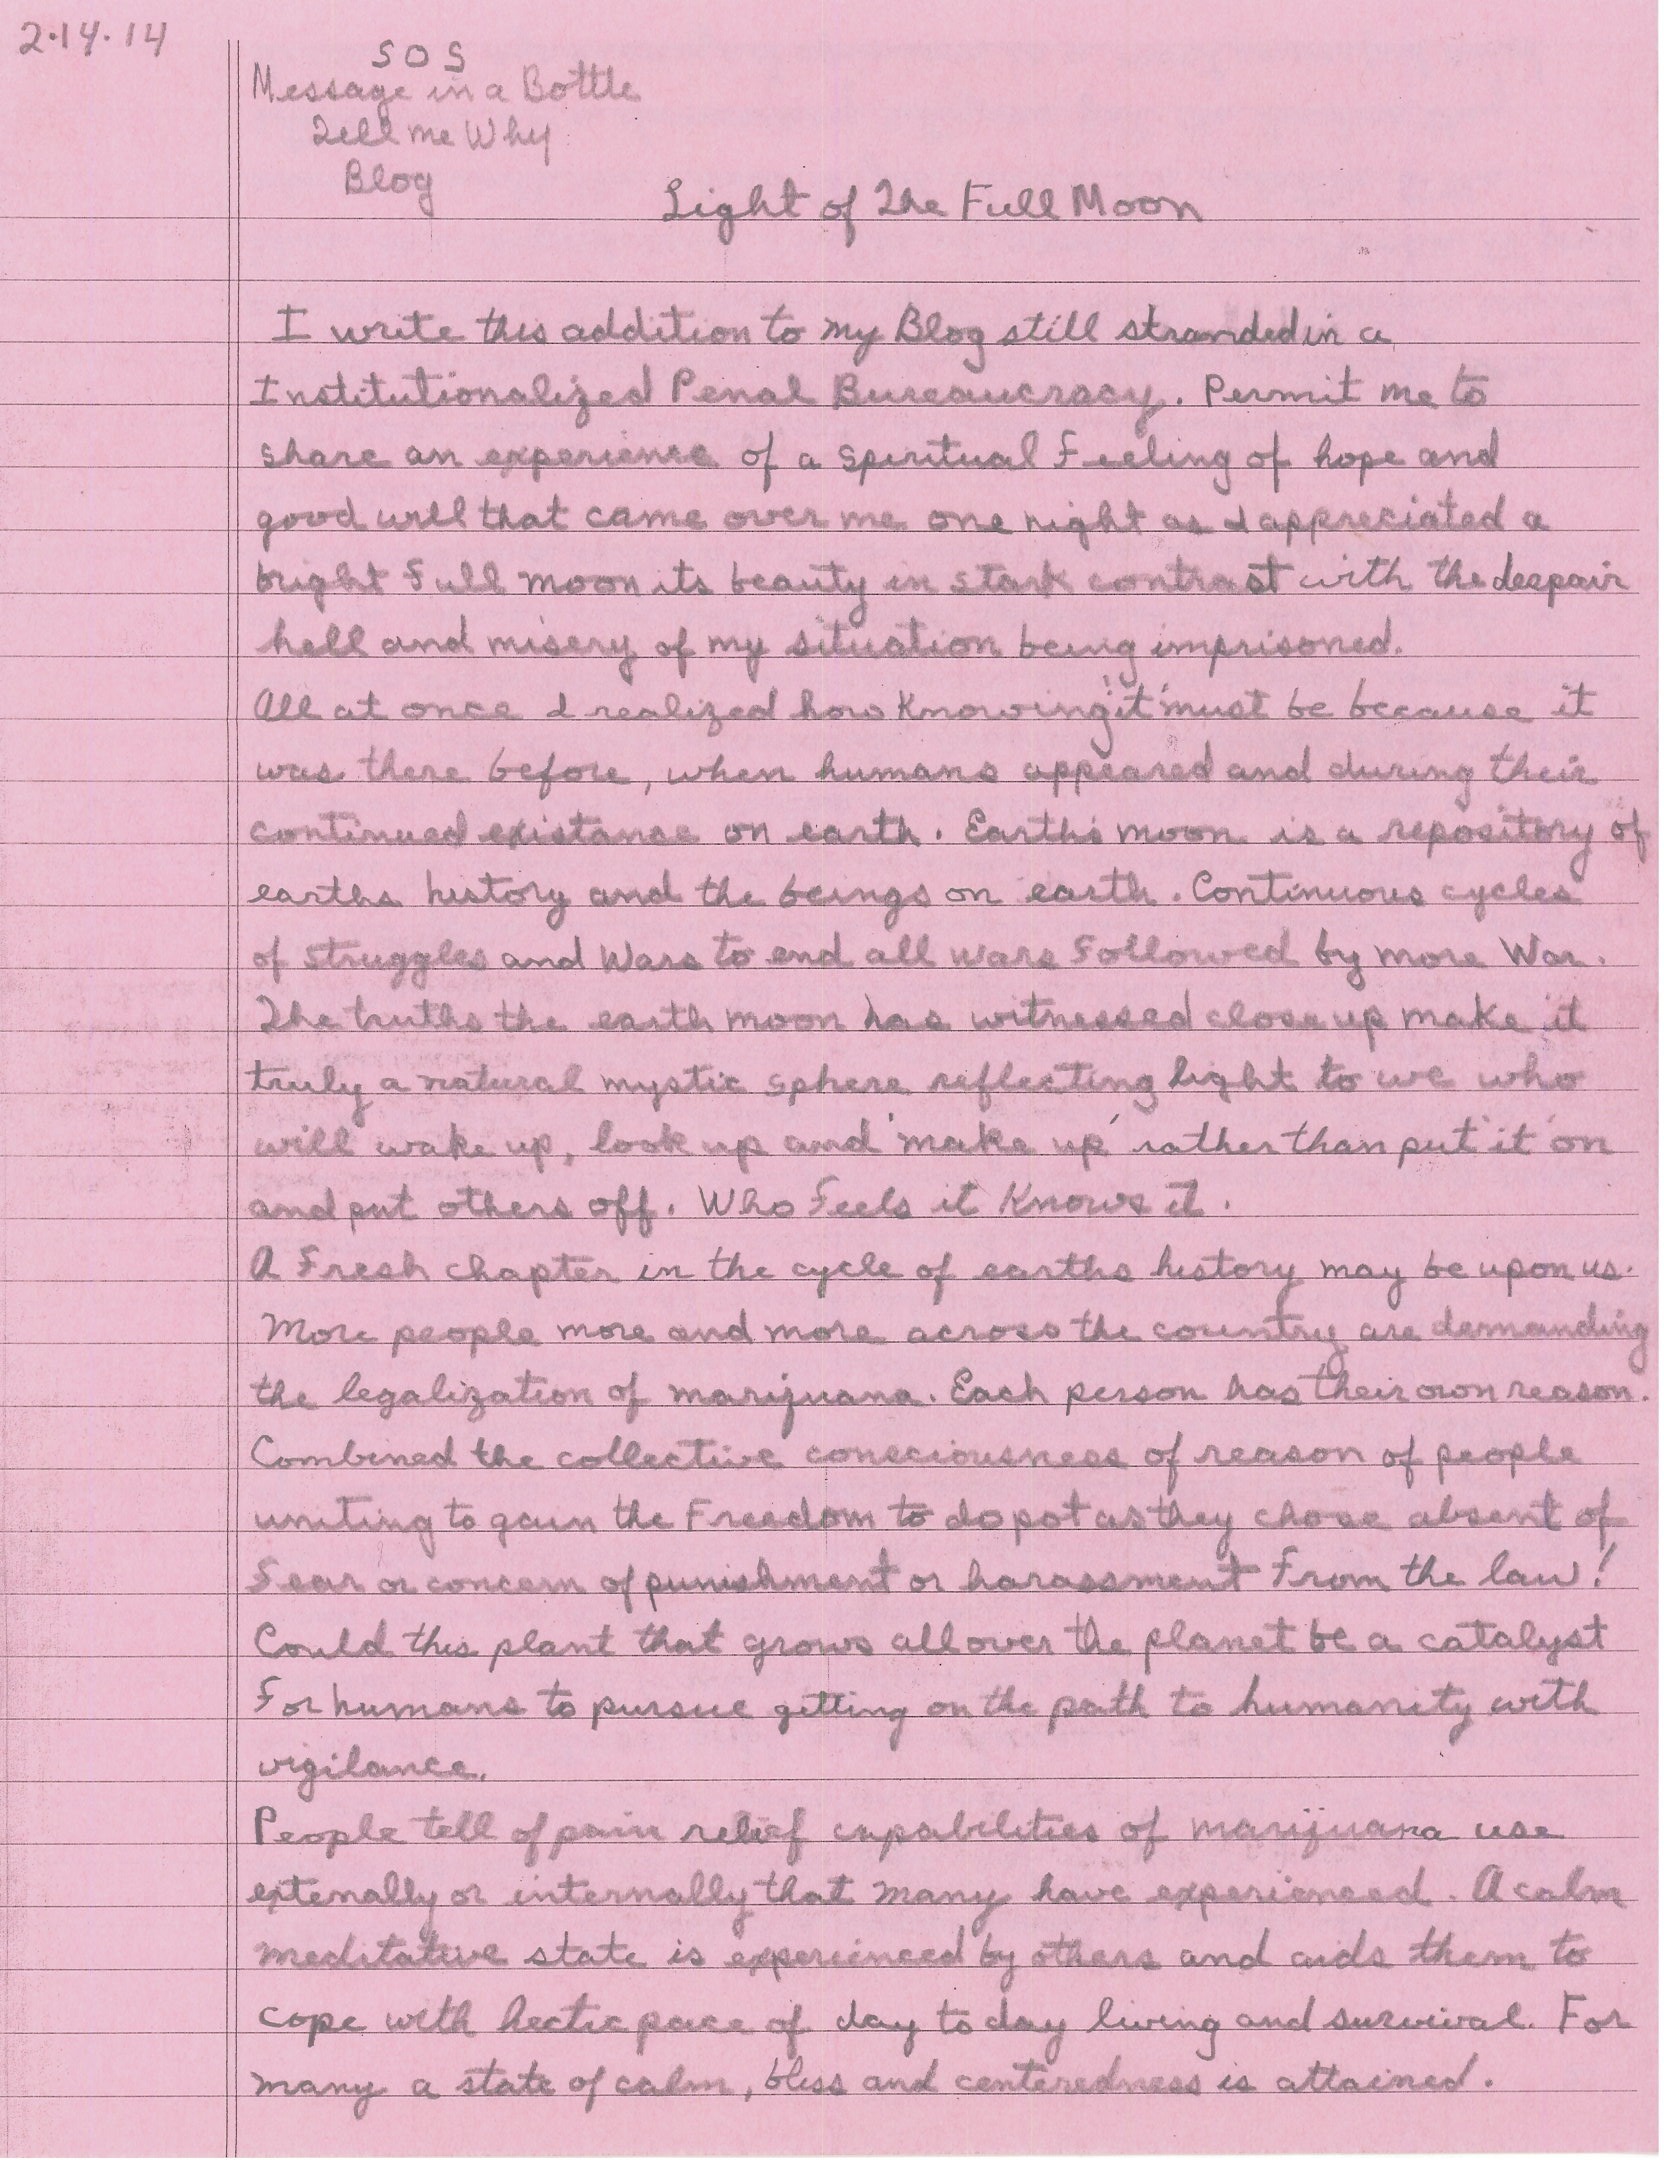 2.14.14
SOS
Message in a Bottle
Tell me Why
Blog
Light of The Full Moon
I write this addition to my Blog still stranded in a
Institutionalized Penal Bureaucracy. Permit me to
share an experience of a spiritual feeling of hope and
good will that came over me one night as I appreciated a
bright full moon its beauty in stark contrast with the despair
hell and misery of my situation being imprisoned.
All at once I realized how knowing 'it' must be because it
was there before, when humans appeared and during their
continued existance on earth. Earth's moon is a repository of
earths history and the beings on earth. Continuous cycles
of struggles and Wars to end all wars followed by more War.
The truths the earth moon has witnessed close up make it
truly a natural mystic sphere reflecting light to we who
will wake up, look up and 'make up' rather than put 'it' on
and put others off. Who Feels it Knows it.
A Fresh chapter in the cycle of earths history may be upon us.
More people more and more across the country are demanding
the legalization of marijuana. Each person has their own reason.
Combined the collective consciousness of reason of people
uniting to gain the Freedom to do pot as they chose absent of
fear or concern of punishment or harassment From the law!
Could this plant that grows all over the planet be a catalyst
For humans to pursue getting on the path to humanity with
vigilance.
People tell of pain relief capabilities of marijuana use
externally or internally that many have experienced. A calm
meditative state is experienced by others and aids them to
cope with hectic pace of day to day living and survival. For
many a state of calm, bliss and centeredness is attained.